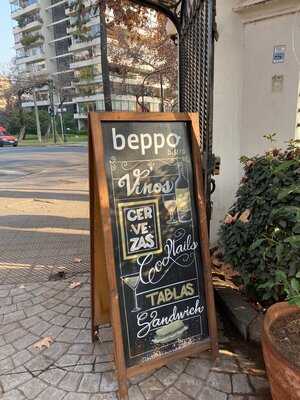 beppo
bistro
Vinos
CER
VE
ZAS
Cocktails
TABLAS
Sandwich